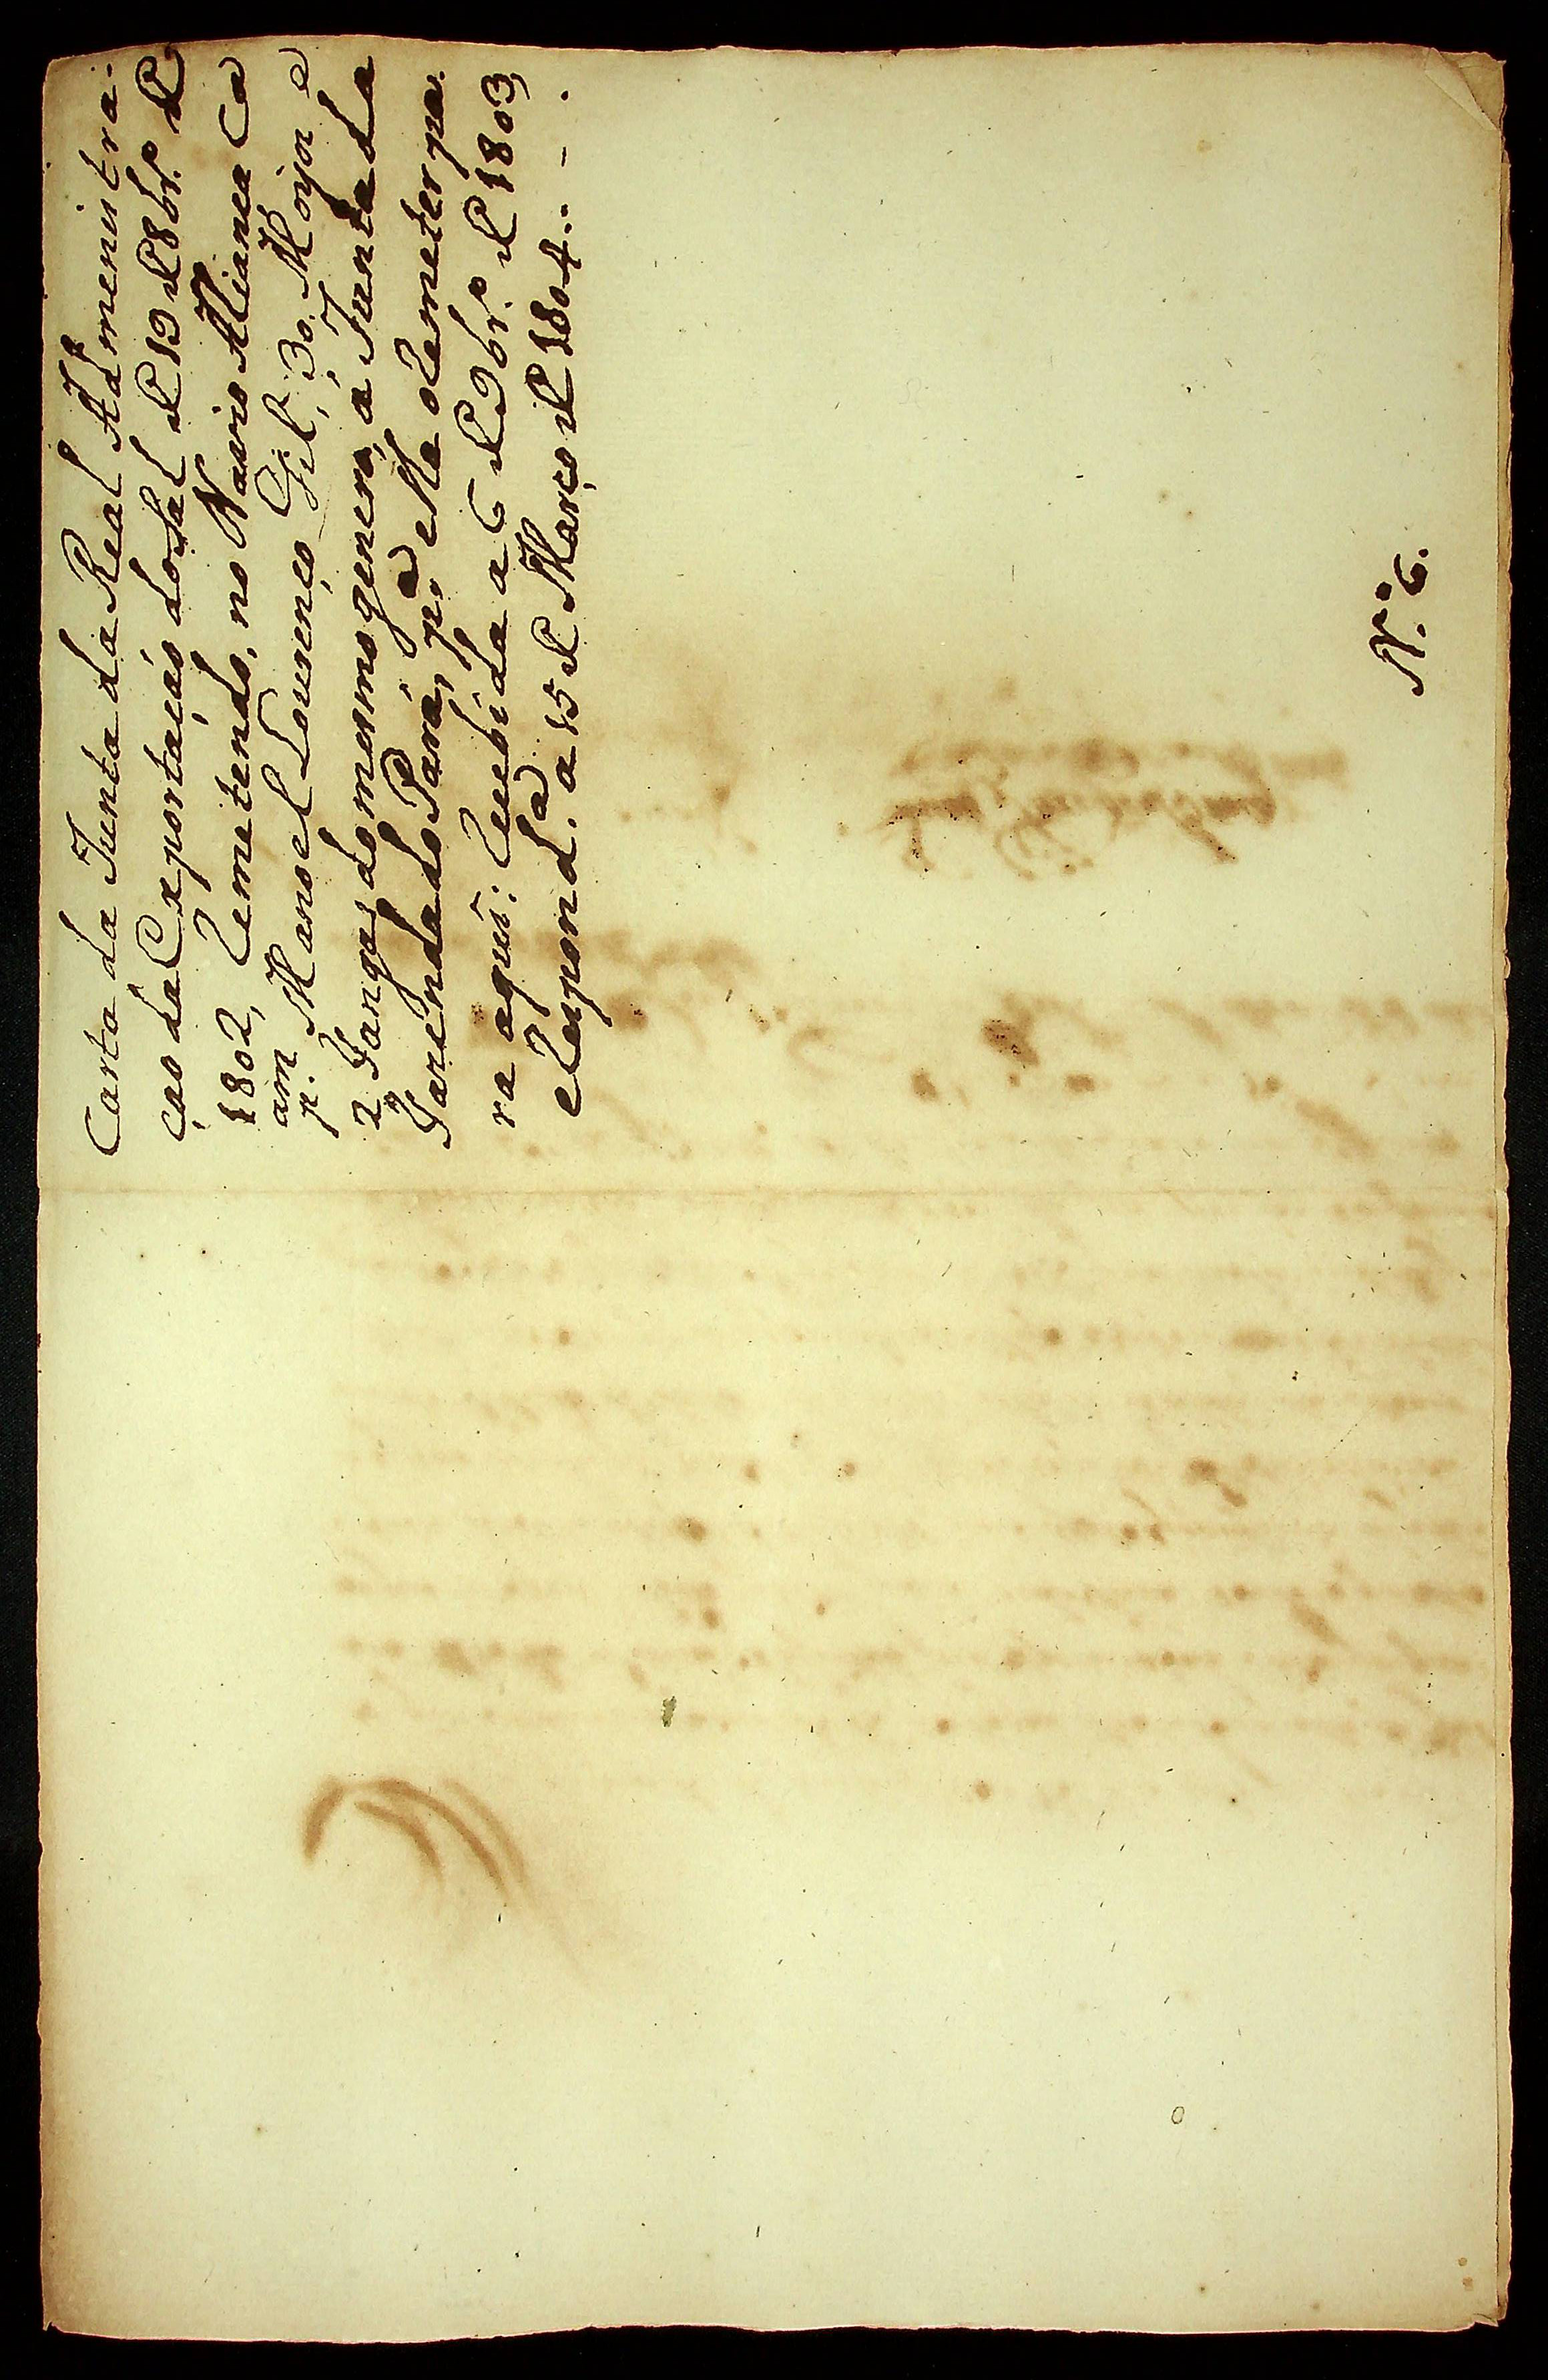 Carta da Junta da Real Admenistra-
çaõ da Exportaçaõ do Sal de 19 de 8br.º de
1802, Remetendo, no Navio Aliança Ca
p.am Manoel Lourenço Gil, 30 Moyos e
2 Fangas do mesmo genero, á Junta da
Fazenda do Pará, p.a esta o Remeter pa.
ra aqui: Recebida a 6 de 9br.º de 1803,
e Respond.da a 15 de Março de 1804..
N.º 6.